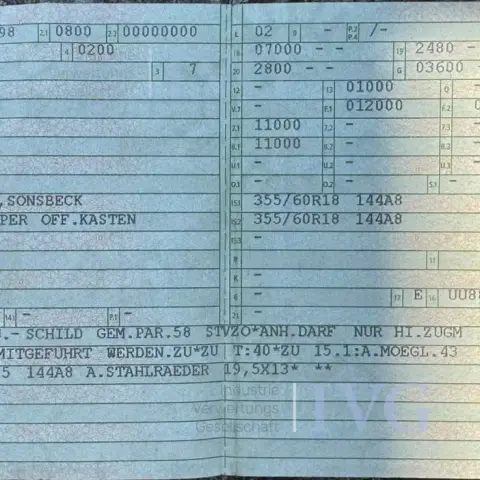 98 2.1 0800 2.2 00000000 L 02 9 - P.2 P.4 /-
4 0200 18 07000 -- 19 2480 -
3 7 20 2800 -- G 03600 -
12 - 13 01000 Q -
V.7 - F.1 012000 F.2 0
7.1 11000 7.2 - 7.3
8.1 11000 8.2 - 8.3
U.1 - U.2 - U.3
O.1 - O.2 - S.1 -
,SONSBECK 15.1 355/60R18 144A8
PER OFF.KASTEN 15.2 355/60R18 144A8
15.3 -
R - 11
K -
6 - 17 E 16 UU88
14.1 - P.1 - 21 -
.- SCHILD GEM.PAR.58 STVZO*ANH.DARF NUR HI.ZUGM
MITGEFUHRT WERDEN.ZU*ZU T:40*ZU 15.1:A.MOEGL.43
5 144A8 A.STAHLRAEDER 19,5X13* **
Industrie
Verwertungs
Gesellschaft
IVG